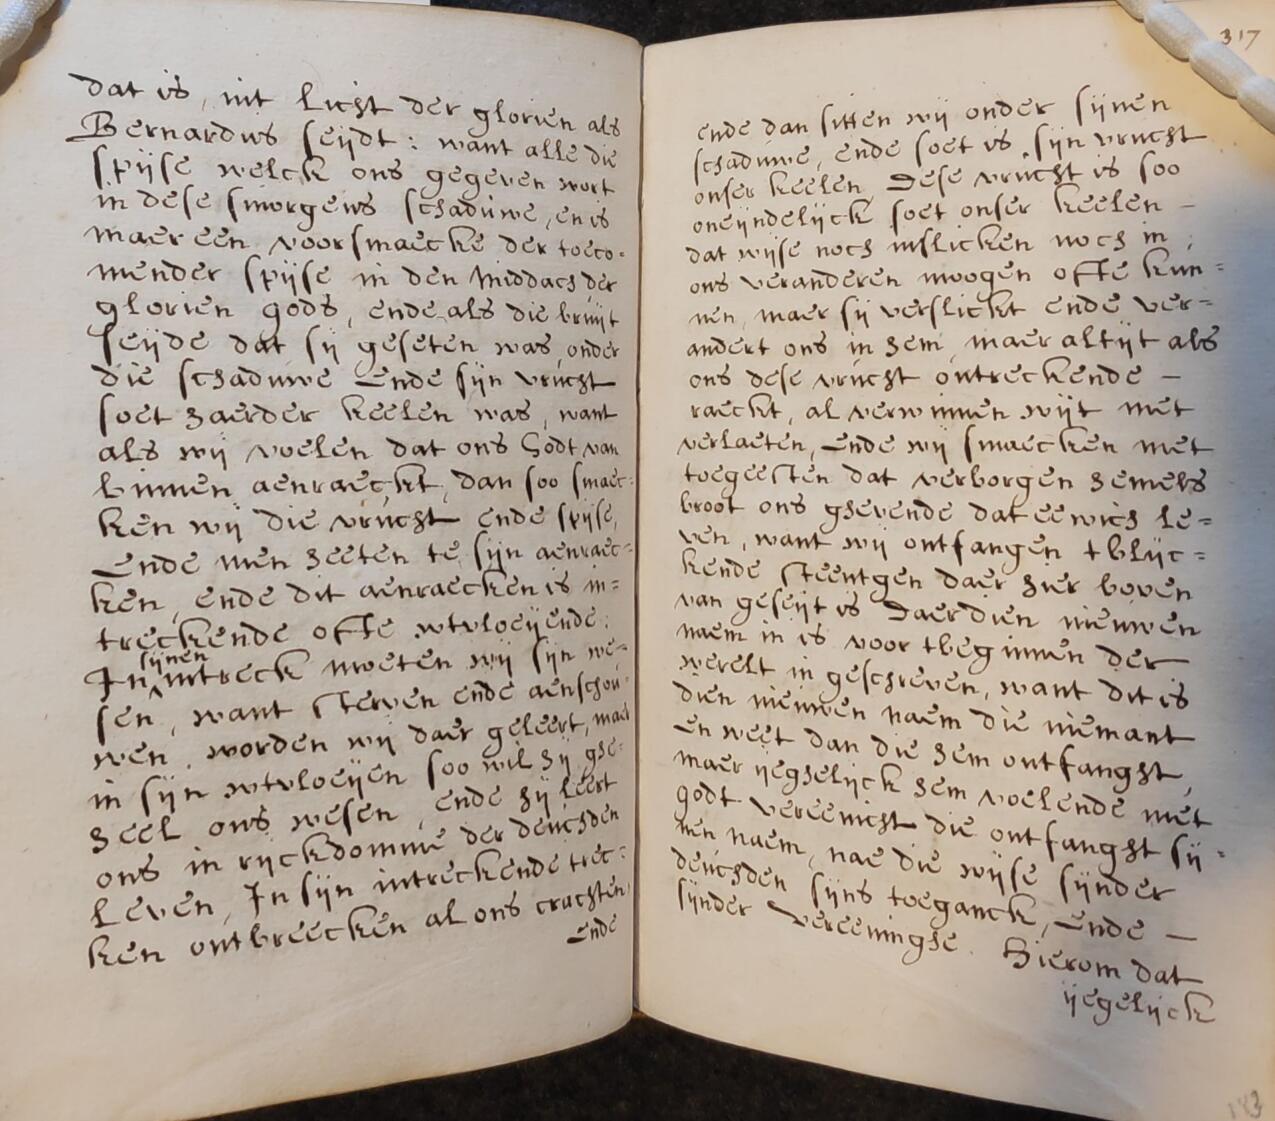 dat is, int licht der glorien als
Bernardus seijdt: want alle die
spijse welck ons gegeven wort
in dese smorgens schaduwe, en is
maer een voorsmaecke der toeco=
mender spijse in den middach der
glorien gods, ende als die bruijt
seijde dat sij geseten was onder
die schaduwe Ende sijn vrucht
soet haerder keelen was, want
als wij voelen dat ons Godt van
binnen aenraeckt, dan soo smaec=
ken wij die vrucht ende spijse,
Ende men heeten te sijn aenraec=
ken, ende dit aenraecken is in=
treckende ofte wtvloeijende:
In sijnen intreck moeten wij sijn we=
sen, want sterven ende aenschou=
wen, worden wij daer geleert, maer
in sijn wtvloeijen soo wil hij ghe=
heel ons wesen, ende hij leert
ons in rijckdomme der deuchden
Leven, In sijn intreckende trec=
ken ontbreecken al ons crachten,
Ende
317
ende dan sitten wij onder sijnen
schaduwe, ende soet is sijn vrucht
onser keelen, Dese vrucht is soo
oneijndelijck soet onser keelen –
dat wijse noch inslicken noch in
ons veranderen moogen ofte kun=
nen, maer sij verslickt ende ver=
andert ons in hem, maer altijt als
ons dese vrucht ontreckende –
raeckt, al verwinnen wijt met
verlaeten, Ende wij smaecken met
toegeesten dat verborgen hemels
broot ons ghevende dat eewich le=
ven, want wij ontfangen tblijc=
kende steentgen daer hier boven
van geseijt is Daer dien nieuwen
naem in is voor tbeginnen der
werelt in geschreven, want dit is
dien nieuwen naem die niemant
en weet dan die hem ontfanght,
maer ijeghelijck hem voelende met
godt vereenicht die ontfanght sij=
nen naem, nae die wijse sijnder
deuchden sijns toeganck, Ende –
sijnder Vereeninghe. Hierom dat
ijegelijck
183